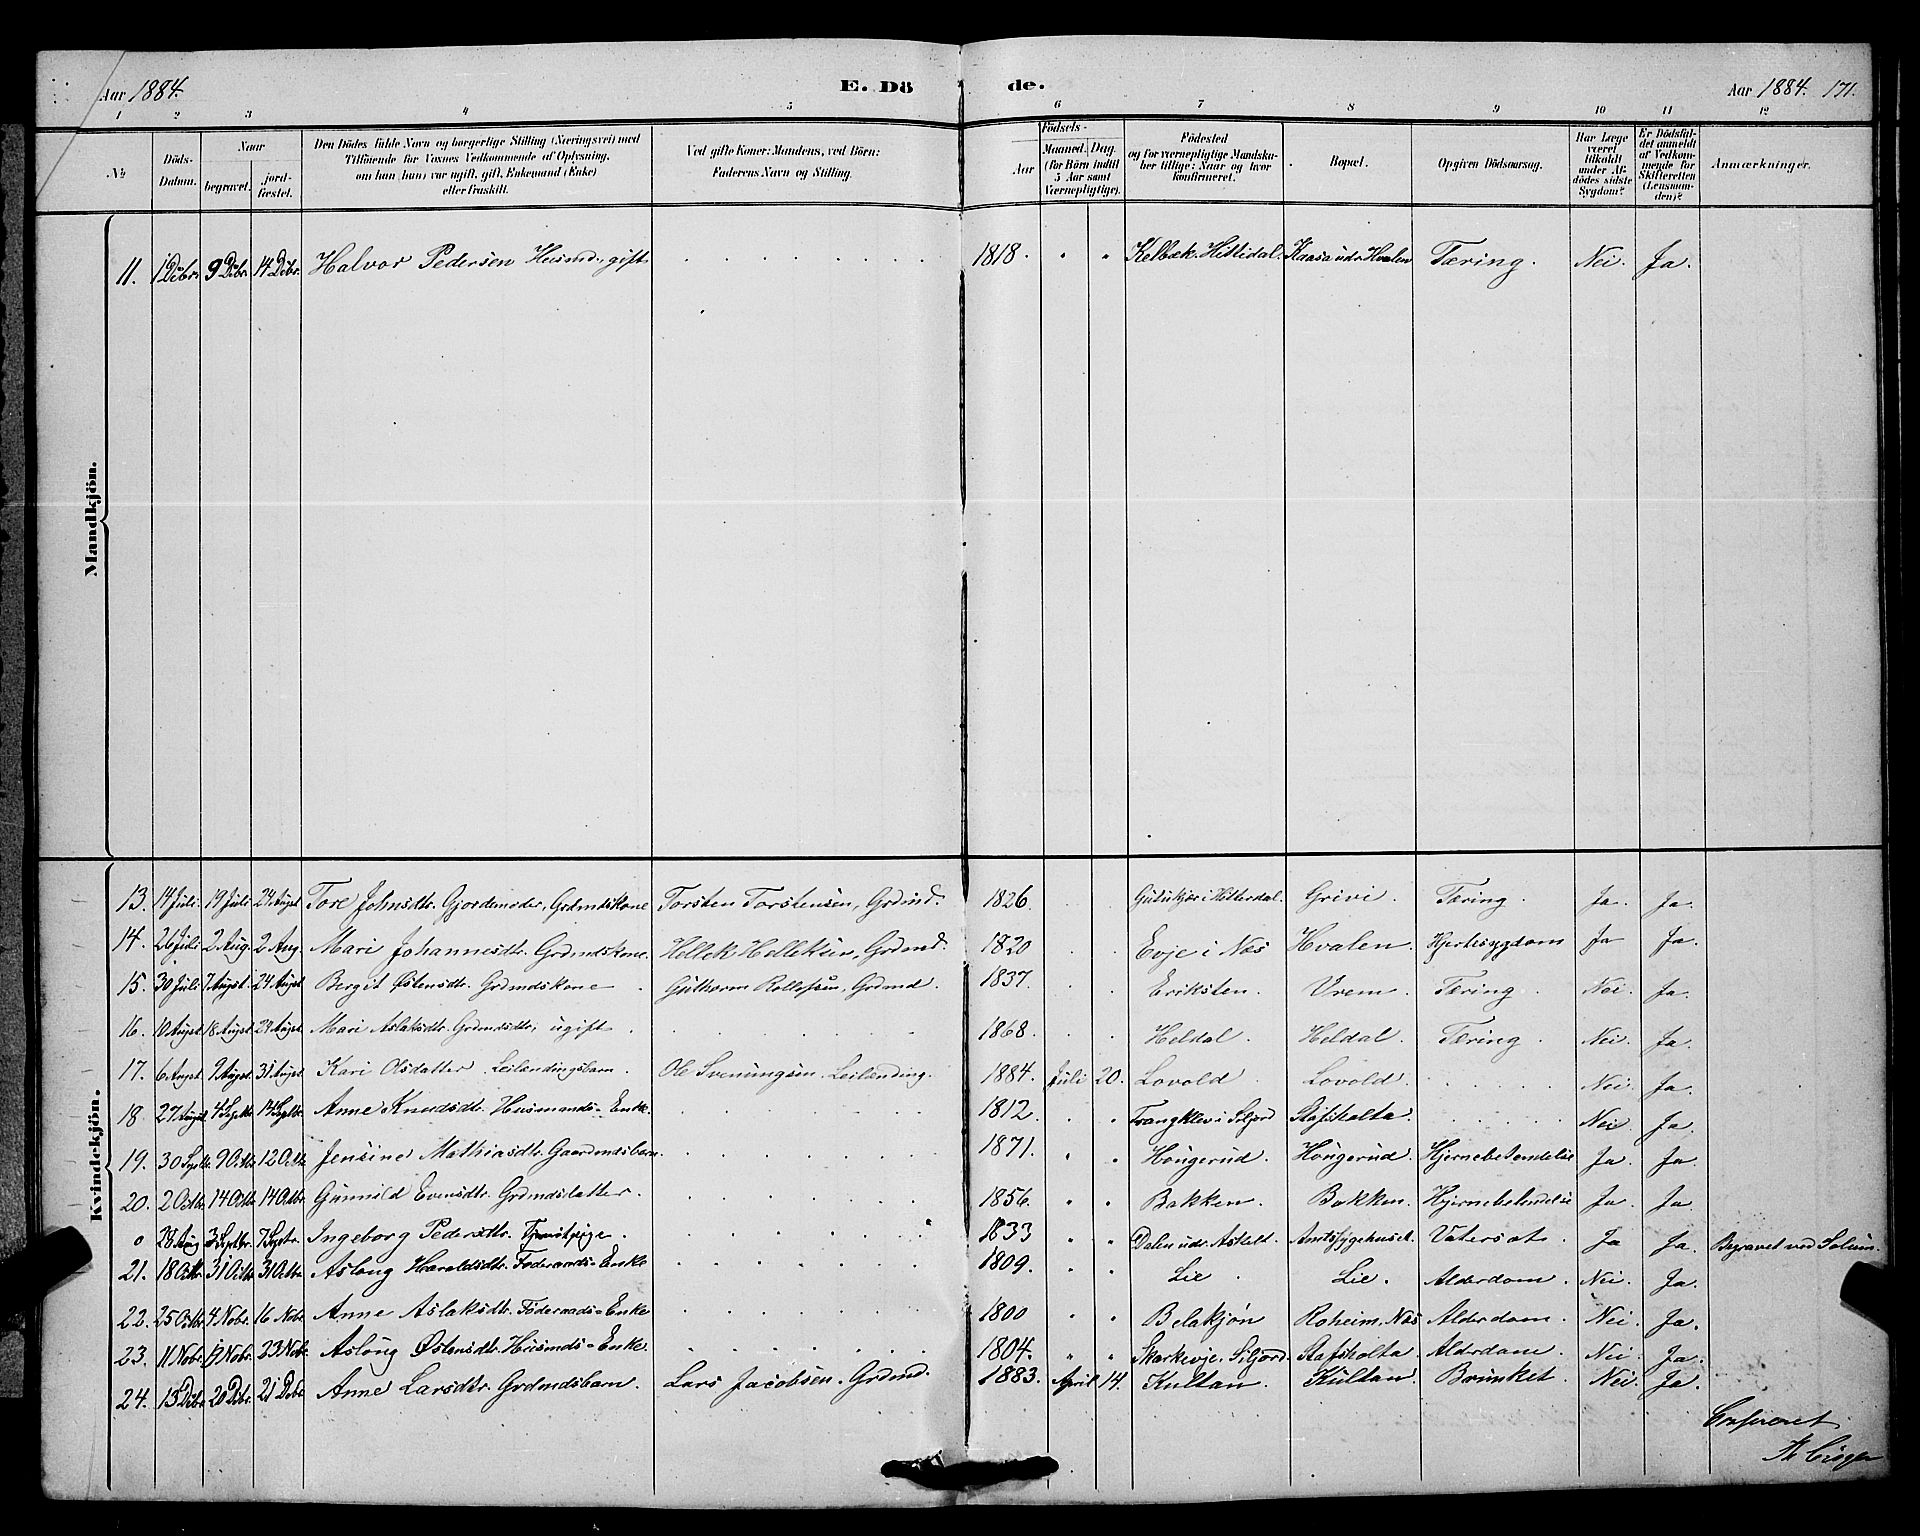 Aar 1884. E. Dö de. Aar 1884. 171.
1 2 3 4 5 6 7 8 9 10 11 12
№ Döds-Datum. Naar begravet. jordfæstet. Den Dödes fulde Navn og borgerlige Stilling (Næringsvei) med Tilföiende for Voxnes Vedkommende af Oplysning, om han (hun) var ugift, gift, Enkemand (Enke) eller fraskilt. Ved gifte Koner: Mandens, ved Börn: Faderens Navn og Stilling. Födsels- Aar Maaned. Dag. (for Börn indtil 5 Aar samt Værnepligtige). Födested og for værnepligtige Mandskaber tillige: Naar og hvor konfirmeret. Bopæl. Opgiven Dödsaarsag. Har Læge været tilkaldt under Afdödes sidste Sygdom? Er Dödsfaldet anmeldt af Vedkommende for Skifteretten (Lensmanden)? Anmærkninger.
Mandkjön.
11. 1 Dcbr. 9 Dcbr. 14 Dcbr. Halvor Pedersen Husmd., gift 1818. " " Kelbæk Hittidal. Kaasa udr Hvalen Tæring. Nei. Ja.
Kvindekjön.
13. 14 Juli. 19 Juli 24 Augst Tore Johnsdtr. Gjordemoder, Grdmdskone Torsten Torstensen, Grdmd. 1826. Hitterdal. Grivi. Tæring. Ja. Ja.
14. 26 Juli 2 Aug. 2 Aug. Mari Johannesdtr. Grdmdskone. Hellek Helleksen, Grdmd. 1820 Evje i Nes Hvalen. Hjertesygdom Ja Ja.
15. 30 Juli 7 Augst. 24 Augst Bergit Østensdtr. Grdmdskone. Guthorm Rollefsen, Grdmd. 1837. Eriksten. Vrem. Tæring. Nei. Ja.
16. 10 Augst. 18 Augst 24 Augst Mari Aslaksdtr. Grdmdsdtr, ugift. 1868. Heldal. Heldal. Tæring. Nei. Ja.
17. 6 Augst. 9 Augst. 31 Augst Kari Olsdatter. Leilændingsbarn. Ole Svenungsen. Leilænding. 1884. Juli 20. Lovold. Lovold. Nei. Ja.
18. 27 Augst 4 Septbr 14 Septbr. Anne Knudsdtr. Husmands-Enke. 1812. Trangklev i Siljord Stafsholta. Nei. Ja.
19. 30 Septbr. 9 Octbr. 12 Octbr. Jensine Mathiasdtr. Gaardmdsbarn. 1871. " " Hougerud. Hougerud. Hjernebetændelse Ja. Ja.
20. 2 Octbr. 14 Octbr. 14 Octbr. Gunnild Evensdtr. Grdmdsdatter. 1856. " " Bakken. Bakken. Hjernebetændelse Ja. Ja.
0 28 Aug 3 Septbr. 7 Septbr. Ingeborg Pedersdtr. Tjenstpige. 1833 " " Dalen udr. Amtssygehuset. Vatersot. Ja Ja. Begravet ved Solum.
21. 18 Octbr. 31 Octbr. 31 Octbr. Aslaug Haraldsdtr. Føderaads-Enke 1809. " " Lie. Lie. Alderdom. Nei. Ja.
22. 25 Octbr. 4 Nobr. 16 Nobr. Anne Aslaksdtr. Føderaads-Enke 1800 " " Belakjøn Roheim, Nes Alderdom. Nei. Ja.
23. 11 Nobr. Nobr. 23 Nobr. Aslaug Østensdtr. Husmds-Enke. 1804. " " Skarkevje, Siljord. Stafsholta. Alderdom. Nei. Ja.
24. 13 Dcbr. 20 Dcbr. 21 Dcbr. Anne Larsdtr. Grdmdsbarn. Lars Jacobsen. Grdmd. 1883. April 14. Kultan. Kultan. Brunket. Nei. Ja.
Confereret